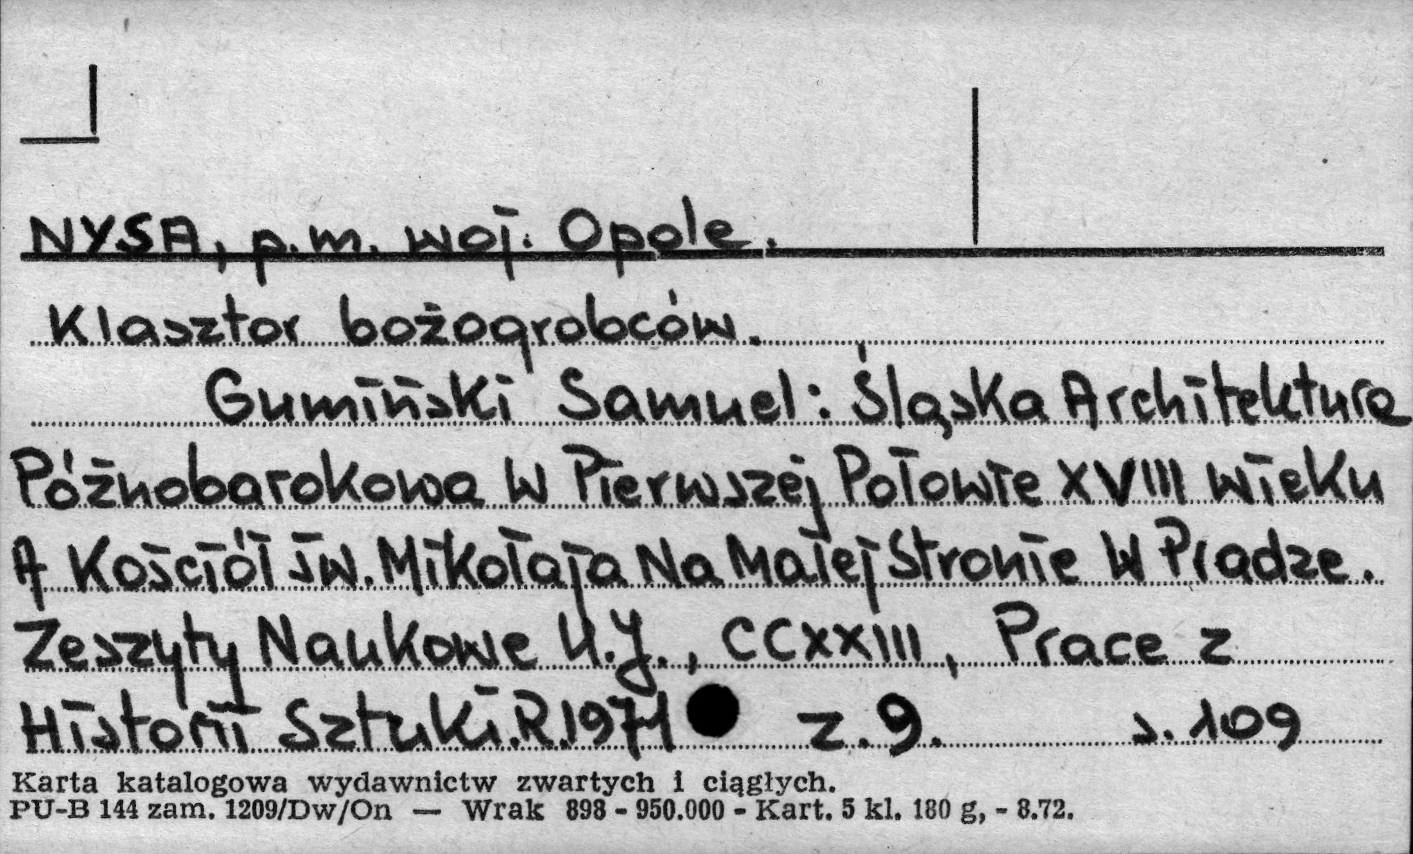 NYSA, p.m. woj. Opole.
Klasztor bożogrobców.
Gumiński Samuel: Śląska Architektura
Późnobarokowa W Pierwszej Połowie XVIII wieku
A Kościół św. Mikołaja Na Małej Stronie W Pradze.
Zeszyty Naukowe U.J., CCXXIII, Prace z
Historii Sztuki.R.1971 z.9. s.109
Karta katalogowa wydawnictw zwartych i ciągłych.
PU-B 144 zam. 1209/Dw/On — Wrak 898 - 950.000 - Kart. 5 kl. 180 g, - 8.72.